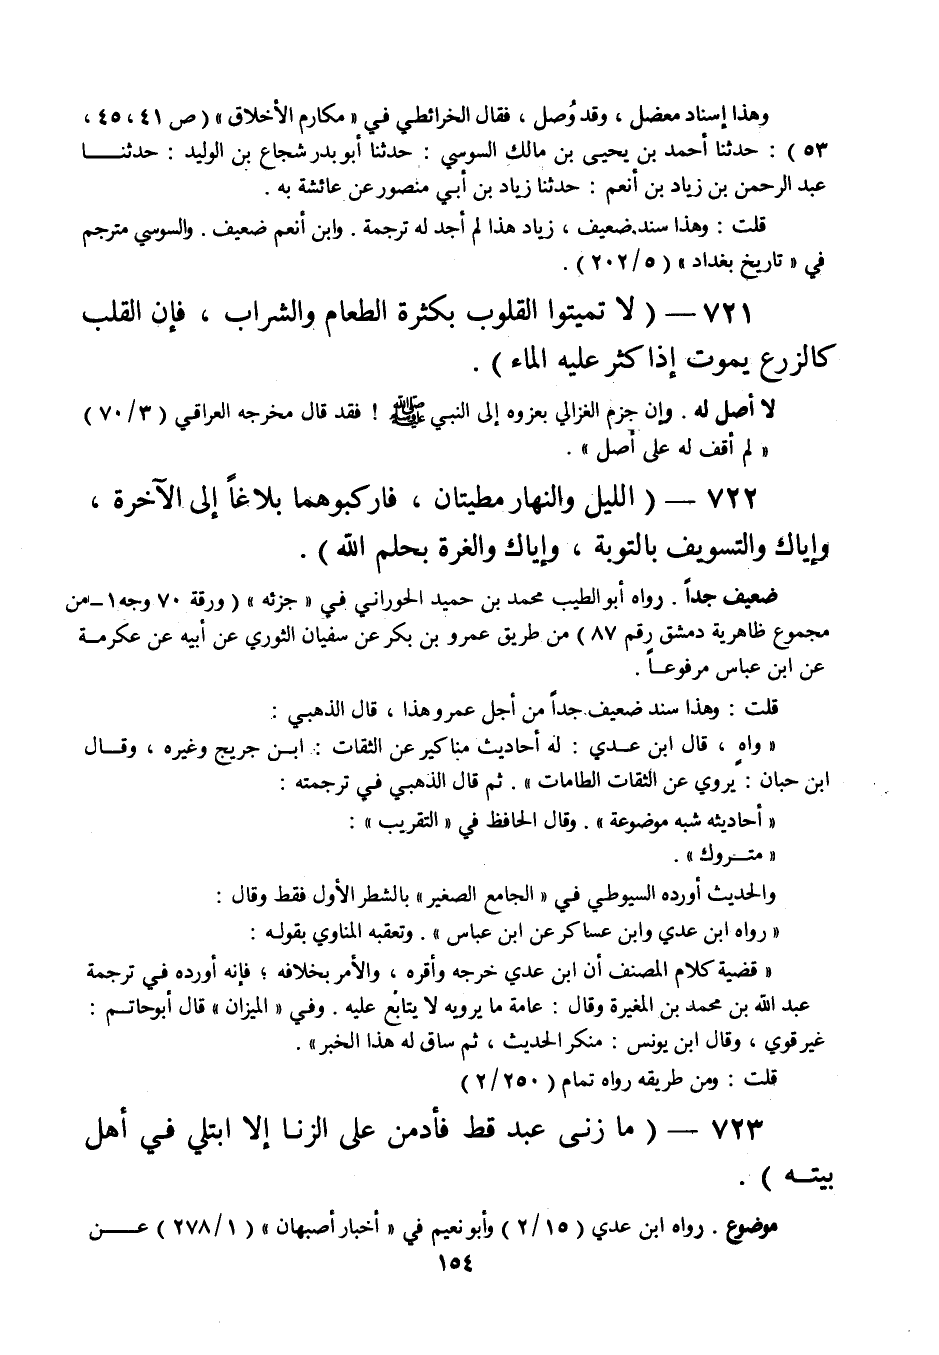 وهذا إسناد معضل ، وقد وُصل ، فقال الخرائطي في « مكارم الأخلاق » ( ص ٤١ ، ٤٥ ،
٥٣ ) : حدثنا أحمد بن يحيى بن مالك السوسي : حدثنا أبو بدر شجاع بن الوليد : حدثنــا
عبد الرحمن بن زياد بن أنعم : حدثنا زياد بن أبي منصور عن عائشة به .
قلت : وهذا سند ضعيف ، زياد هذا لم أجد له ترجمة . وابن أنعم ضعيف . والسوسي مترجم
في « تاريخ بغداد » ( ٥/٢٠٢ ) .
٧٢١ — ( لا تميتوا القلوب بكثرة الطعام والشراب ، فإن القلب
كالزرع يموت إذا كثر عليه الماء ) .
لا أصل له . وإن جزم الغزالي بعزوه إلى النبي ﷺ ! فقد قال مخرجه العراقي ( ٣/٧٠ )
« لم أقف له على أصل » .
٧٢٢ — ( الليل والنهار مطيتان ، فاركبوهما بلاغاً إلى الآخرة ،
وإياك والتسويف بالتوبة ، وإياك والغرة بحلم الله ) .
ضعيف جداً . رواه أبو الطيب محمد بن حميد الحوراني في « جزئه » ( ورقة ٧٠ وجه ١ - من
مجموع ظاهرية دمشق رقم ٨٧ ) من طريق عمرو بن بكر عن سفيان الثوري عن أبيه عن عكرمــة
عن ابن عباس مرفوعــاً .
قلت : وهذا سند ضعيف جداً من أجل عمرو هذا ، قال الذهبي :
« واهٍ ، قال ابن عــدي : له أحاديث مناكير عن الثقات : ابــن جريج وغيره ، وقــال
ابن حبان : يروي عن الثقات الطامات » . ثم قال الذهبي في ترجمته :
« أحاديثه شبه موضوعة » . وقال الحافظ في « التقريب » :
« متــروك » .
والحديث أورده السيوطي في « الجامع الصغير » بالشطر الأول فقط وقال :
« رواه ابن عدي وابن عساكر عن ابن عباس » . وتعقبه المناوي بقولـه :
« قضية كلام المصنف أن ابن عدي خرجه وأقره ، والأمر بخلافه ؛ فإنه أورده في ترجمة
عبد الله بن محمد بن المغيرة وقال : عامة ما يرويه لا يتابع عليه . وفي « الميزان » قال أبو حاتـم :
غير قوي ، وقال ابن يونس : منكر الحديث ، ثم ساق له هذا الخبر » .
قلت : ومن طريقه رواه تمام ( ٢/٢٥٠ )
٧٢٣ — ( ما زنـى عبد قط فأدمن على الزنـا إلا ابتلي في أهل
بيتــه ) .
موضوع . رواه ابن عدي ( ٢/١٥ ) وأبو نعيم في « أخبار أصبهان » ( ١/٢٧٨ ) عــــن
١٥٤